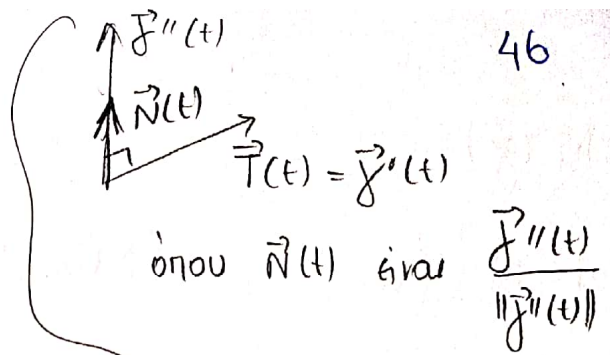 γ⃗''(t)
46
N⃗(t)
T⃗(t) = γ⃗'(t)
όπου N⃗(t) είναι γ⃗''(t) / ||γ⃗''(t)||